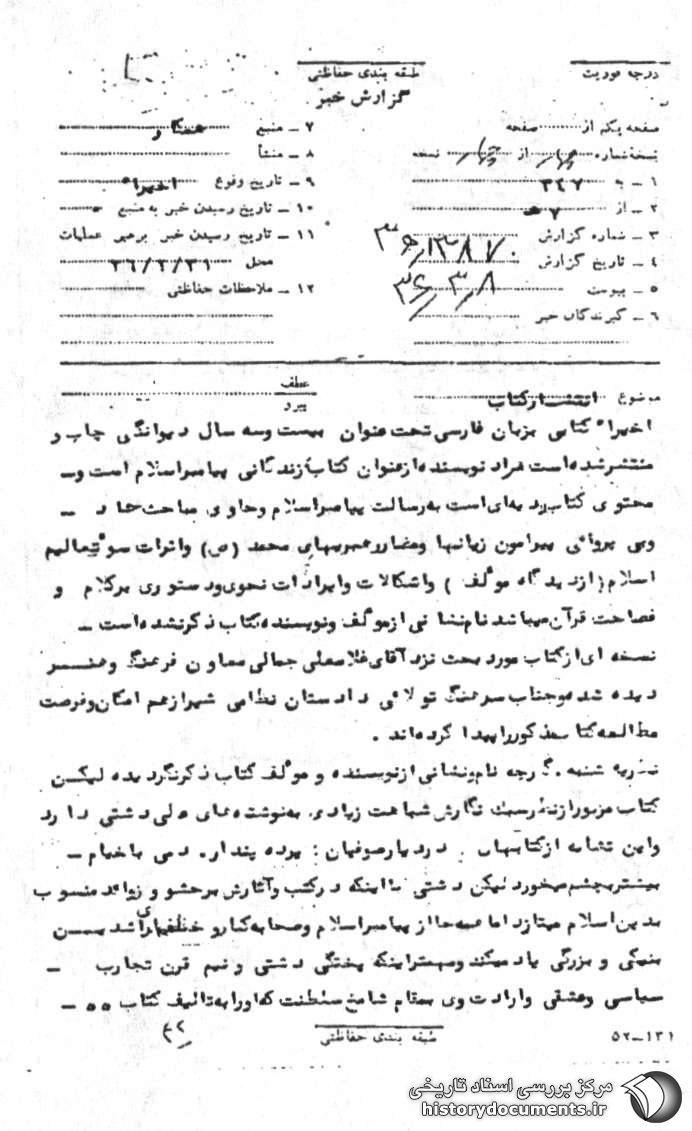 درجه فوریت
طبقه بندی حفاظتی
گزارش خبر
صفحه یکم از صفحه
نسخه شماره چهار از چهار نسخه
۱ ـ به ۳۴۷
۲ ـ از ۷ هـ
۳ ـ شماره گزارش
۴ ـ تاریخ گزارش ۳۶/۳/۸
۵ ـ پیوست
۶ ـ گیرندگان خبر
۷ ـ منبع همکار
۸ ـ منشأ
۹ ـ تاریخ وقوع اخیراً
۱۰ ـ تاریخ رسیدن خبر به منبع
۱۱ ـ تاریخ رسیدن خبر برهبر عملیات
محل ۳۶/۲/۳۱
۱۲ ـ ملاحظات حفاظتی
موضوع انتشار کتاب
عطف
پیرو
اخیراً کتابی بزبان فارسی تحت عنوان بیست وسه سال دیوانگی چاپ و
منتشر شده است مراد نویسنده از عنوان کتاب زندگانی پیامبر اسلام است و ـ
محتوی کتاب ردیه‌ای است به رسالت پیامبر اسلام و حاوی مباحث حاد ـ
وبی پروائی پیرامون زیانها ومضار رهبریهای محمد (ص) واثرات سوء تعالیم
اسلام (از دیدگاه مولف) واشکالات وایرادات نحوی ودستوری برکلام و
فصاحت قرآن میباشد نام نشانی از مولف ونویسنده کتاب ذکر نشده است ـ
نسخه ای از کتاب مورد بحث نزد آقای غلامعلی جمالی معاون فرهنگ وهنر
دیده شد وجناب سرهنگ تولائی دادستان نظامی شیراز هم امکان وفرصت
مطالعه کتاب مذکور را پیدا کرده‌اند .
نظریه شنبه . گرچه نام ونشانی از نویسنده و مولف کتاب ذکر نگردیده لیکن
کتاب مزبور از نظر سبک نگارش شباهت زیادی به نوشته‌های علی دشتی دارد
واین تشابه از کتابهای . در دیار صوفیان : پرده پندار . دمی با خیام ـ
بیشتر بچشم میخورد لیکن دشتی با اینکه در کتب وآثارش برحشو و زوائد منسوب
بدین اسلام میتازد اما همه جا از پیامبر اسلام وصحابه کبار و خلفای راشدین
بنیکی و بزرگی یاد میکند ومهمتر اینکه پختگی دشتی و نیم قرن تجارب ـ
سیاسی وعشقی وارادت وی بمقام شامخ سلطنت که او را به تالیف کتاب ۵۵ ـ
طبقه بندی حفاظتی
۱۳۱ـ۵۲
مرکز بررسی اسناد تاریخی
historydocuments.ir